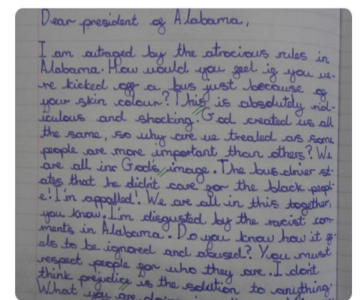 Dear president of Alabama,
I am outraged by the atrocious rules in
Alabama. How would you feel if you we-
re kicked off a bus just because of
your skin colour? This is absolutely rid-
iculous and shocking. God created us all
the same, so why are we treated as some
people are more important than others? We
are all in Gods image. The bus driver st-
ates that he didn't care for the black peopl-
e! I'm appalled! We are all in this together,
you know. I'm disgusted by the racist com-
ments in Alabama. Do you know how it fe-
els to be ignored and abused? You must
respect people for who they are. I don't
think prejudice is the solution to anything.
What you are doing is